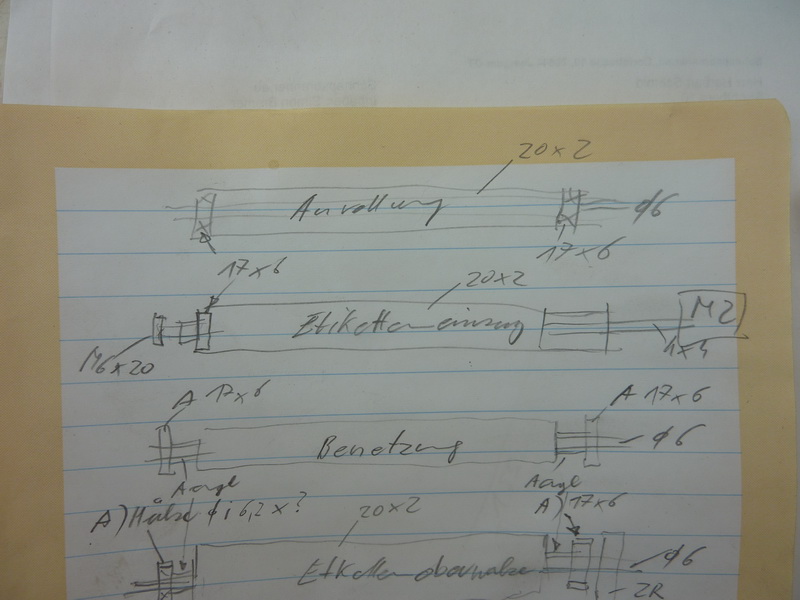 20x2
Anrollung
ø6
17x6
17x6
20x2
Etiketteneinzug
M2
M6x20
4x4
A 17x6
A 17x6
Benetzung
ø6
A) Hülse ø i 6,2 x?
20x2
A) 17x6
Etikettenoberwalze
ø6
ZR